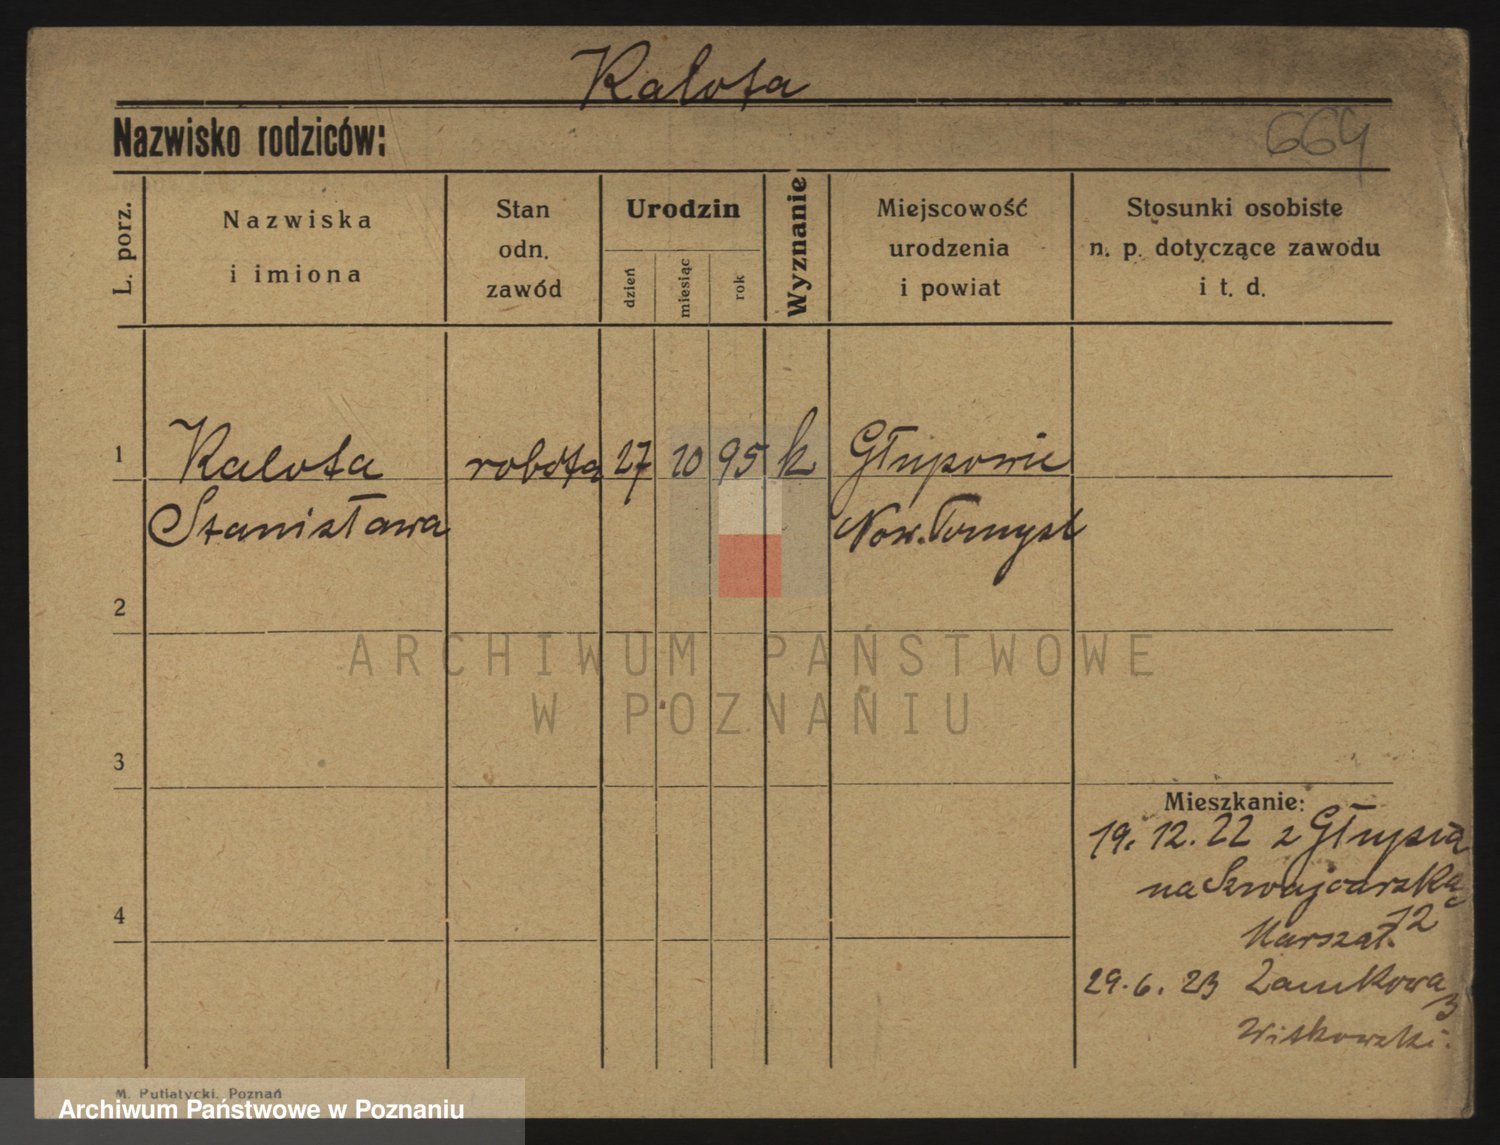 Kalota
Nazwisko rodziców:
664
L. porz.
Nazwiska
i imiona
Stan
odn.
zawód
Urodzin
dzień
miesiąc
rok
Wyznanie
Miejscowość
urodzenia
i powiat
Stosunki osobiste
n. p. dotyczące zawodu
i t. d.
1 Kalota robota 27 10 95 k Głuponie
Stanisława Now. Tomysl
2
3
4
Mieszkanie:
19. 12. 22 z
na Szwajcarską
12
Marszał.
29. 6. 23 Zamkowa
3
Witkowski.
M. Putiatycki, Poznań
ARCHIWUM PAŃSTWOWE
W POZNANIU
Archiwum Państwowe w Poznaniu